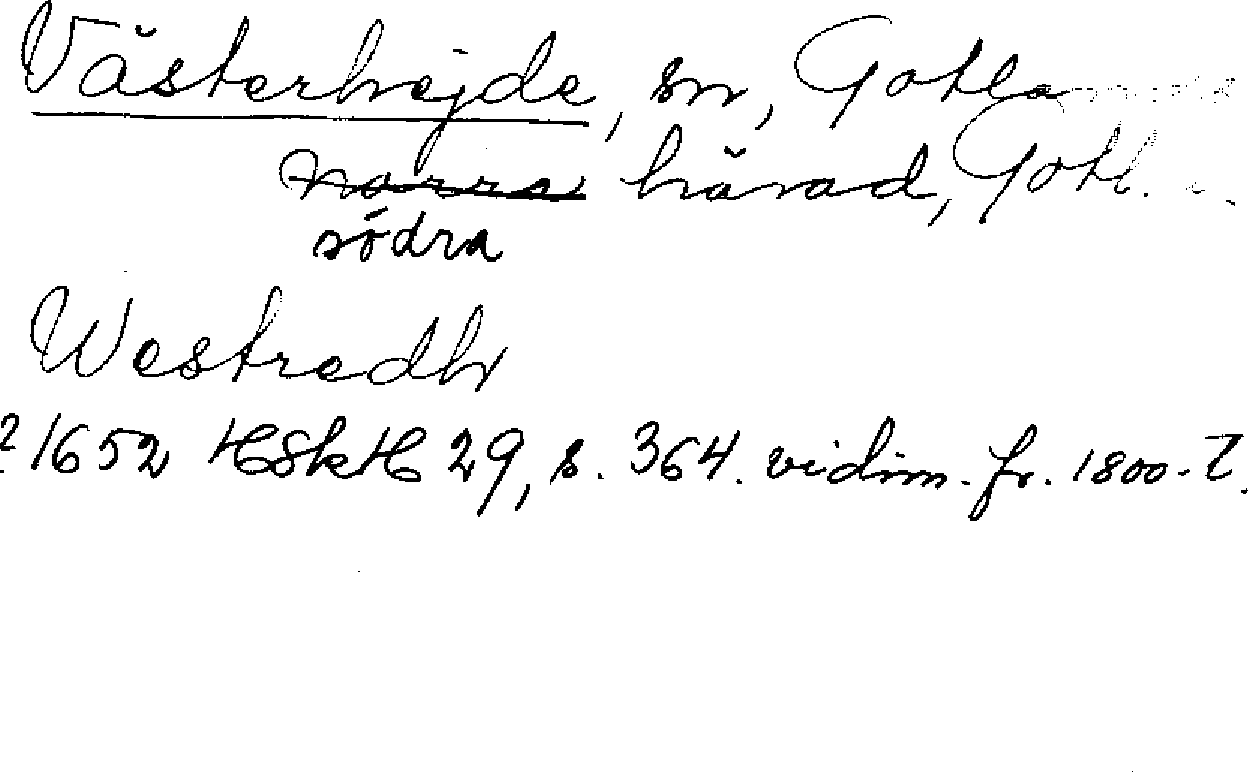 Västerhejde, sn, Gotlands
norra härad, Gotl.
södra
Westredh
? 1652 HSkH 29, s. 364. vidim. fr. 1800-t.